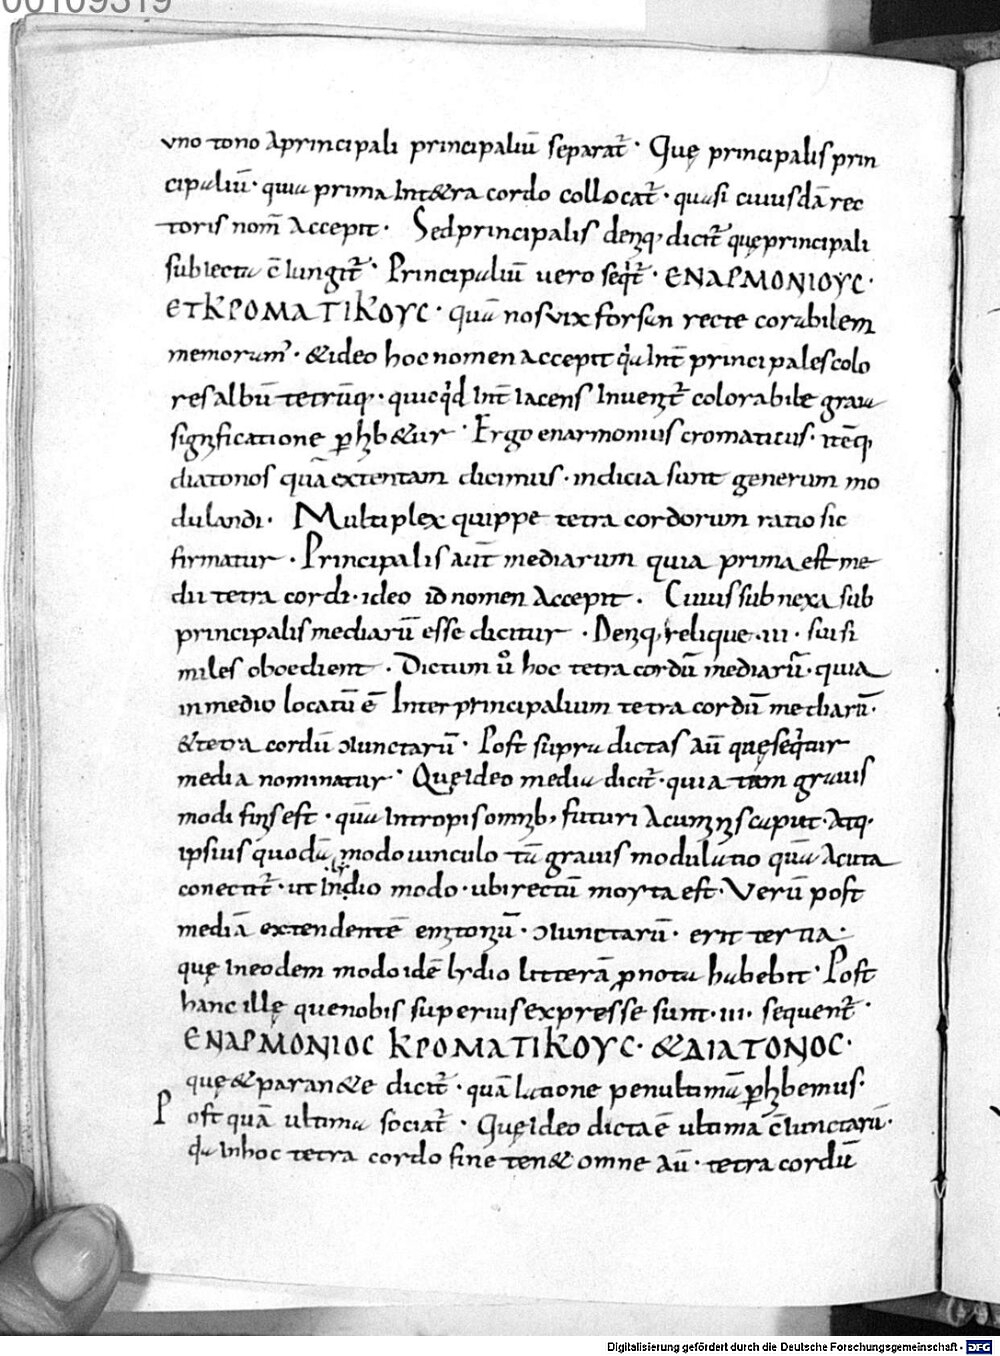 00109319
uno tono a principali principaliū separat̄ · Quę principalis prin
cipaliū · quia prima int& tra cordo collocat̄ · quasi cuiusdā rec
toris nom̄ accepit · Sed principalis deniq; dicit̄ quę principali
subiecta c̄iungit̄ · Principaliū uero seqt̄ · ЄNAPMONIOYC ·
ЄTKPOMATIKOYC · quā nos uix forsan recte corabilem
memoram̄ · & ideo hoc nomen accepit qa int̄ principales colo
res albū tetrūq; · quicqd int̄ iacens inuenit̄ colorabile graui
significatione phib&ur · Ergo enarmonius cromaticus · itēq;
diatonos quā extentam dicimus · indicia sunt generum mo
dulandi · Multiplex quippe tetra cordorum ratio sic
firmatur · Principalis aut̄ mediarum quia prima est me
dii tetra cordi · ideo id nomen accepit · Cuius subnexa sub
principalis mediarū esse dicitur · Deniq; relique · iii · sui si
miles oboedient · Dictum ů hoc tetra cordū mediarū · quia
in medio locatū ē inter principalium tetra cordū mediarū ·
& tetra cordū ɔiunctarū · Post supra dictas aū quę seqtur
media nominatur · Quę ideo media dicit̄ · quia tam grauis
modi finis est · quā intropis omnib; futuri acuminis caput · atq;
ipsius quodā modo uinculo tā grauis modulatio quā acuta
conectit̄ · ut indio modo · ubi rectū moyta est · Verū post
mediā extendentē emitoniū · ɔiunctarū · erit tertia ·
quę in eodem modo idē lydio litterā p nota habebit · Post
hanc illę que nobis superius expresse sunt · iii · sequent̄ ·
ЄNAPMONIOC KPOMATIKOYC · & ΔIATONOC ·
quę & paran&e dicit̄ · quā latione penultimā phibemus ·
Post quā ultima sociat̄ · Quę ideo dicta ē ultima c̄iunctarū ·
qa in hoc tetra cordo fine ten& omne aū · tetra cordū
Digitalisierung gefördert durch die Deutsche Forschungsgemeinschaft - DFG